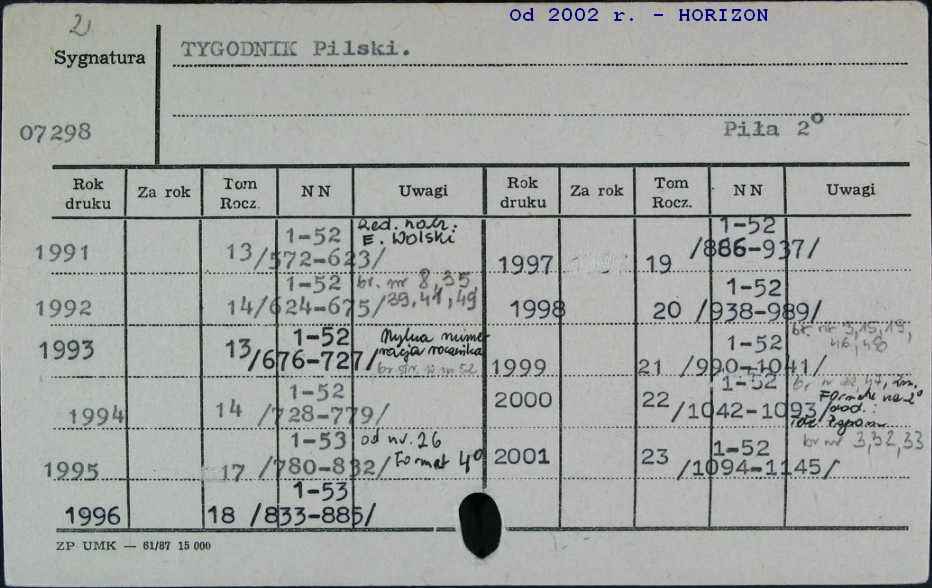 Od 2002 r. - HORIZON
2
Sygnatura
TYGODNIK Pilski.
07298
Piła 2°
Rok druku Za rok Tom Rocz. NN Uwagi Rok druku Za rok Tom Rocz. NN Uwagi
1991 13 1-52 /572-623/ Red. nacz. : E. Wolski
1992 14 1-52 /624-675/ br. nr 8, 35, 39, 41, 49
1993 13 1-52 /676-727/ Mylna numeracja rocznika
1994 14 1-52 /728-779/
1995 17 1-53 /780-832/ od nr. 26 Format 4°
1996 18 1-53 /833-885/
1997 19 1-52 /886-937/
1998 20 1-52 /938-989/
1999 21 1-52 /990-1041/ br. nr 3, 15, 19, 46, 48
2000 22 1-52 /1042-1093/
2001 23 1-52 /1094-1145/ br nr 3, 32, 33
ZP UMK — 61/87 15 000